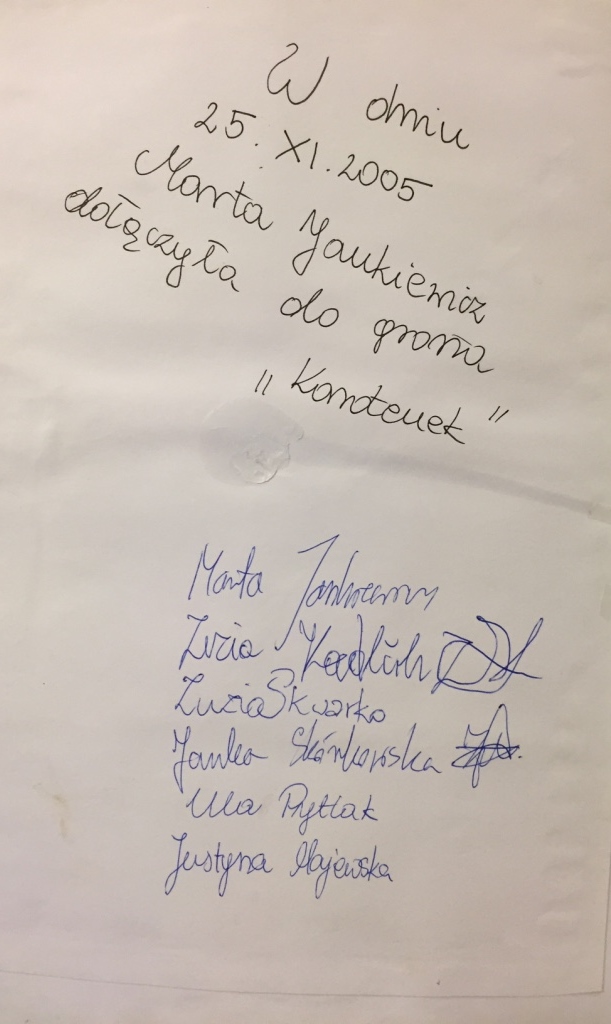 W dniu
25. XI. 2005
Marta Jankiewicz
dołączyła do grona
„Kandenek"
Marta
Zuzia
Zuzia Skwarko
Janka Skórkowska
Ula Pytlak
Justyna Majewska